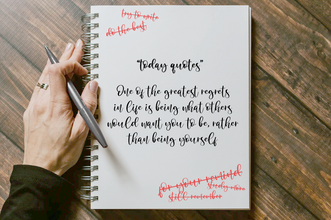 try to write
do the best
"today quotes"
One of the greatest regrets
in life is being what others
would want you to be, rather
than being yourself
for your remind
still remember